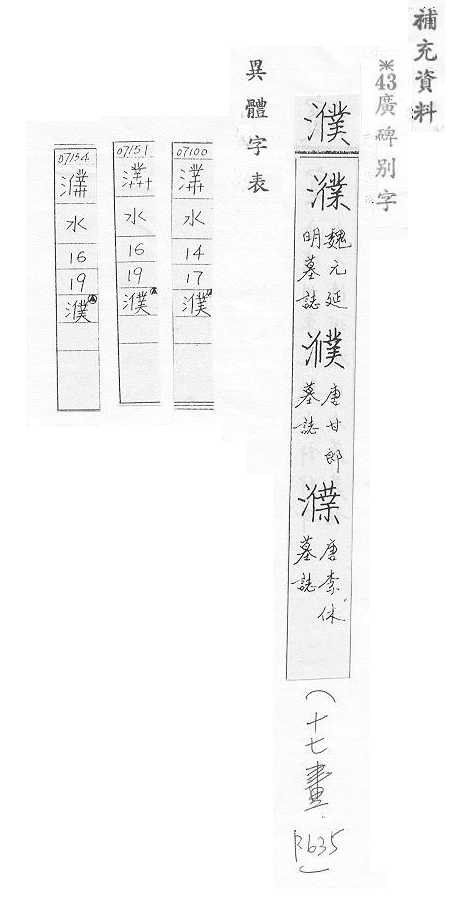 補充資料
※43廣碑別字
濮
濮
魏元延
明墓誌
濮
唐甘郎
墓誌
濮
墓誌
(十七畫.
P.635)
異體字表
07100
水
14
17
濮
07151
水
16
19
濮
07154
水
16
19
濮